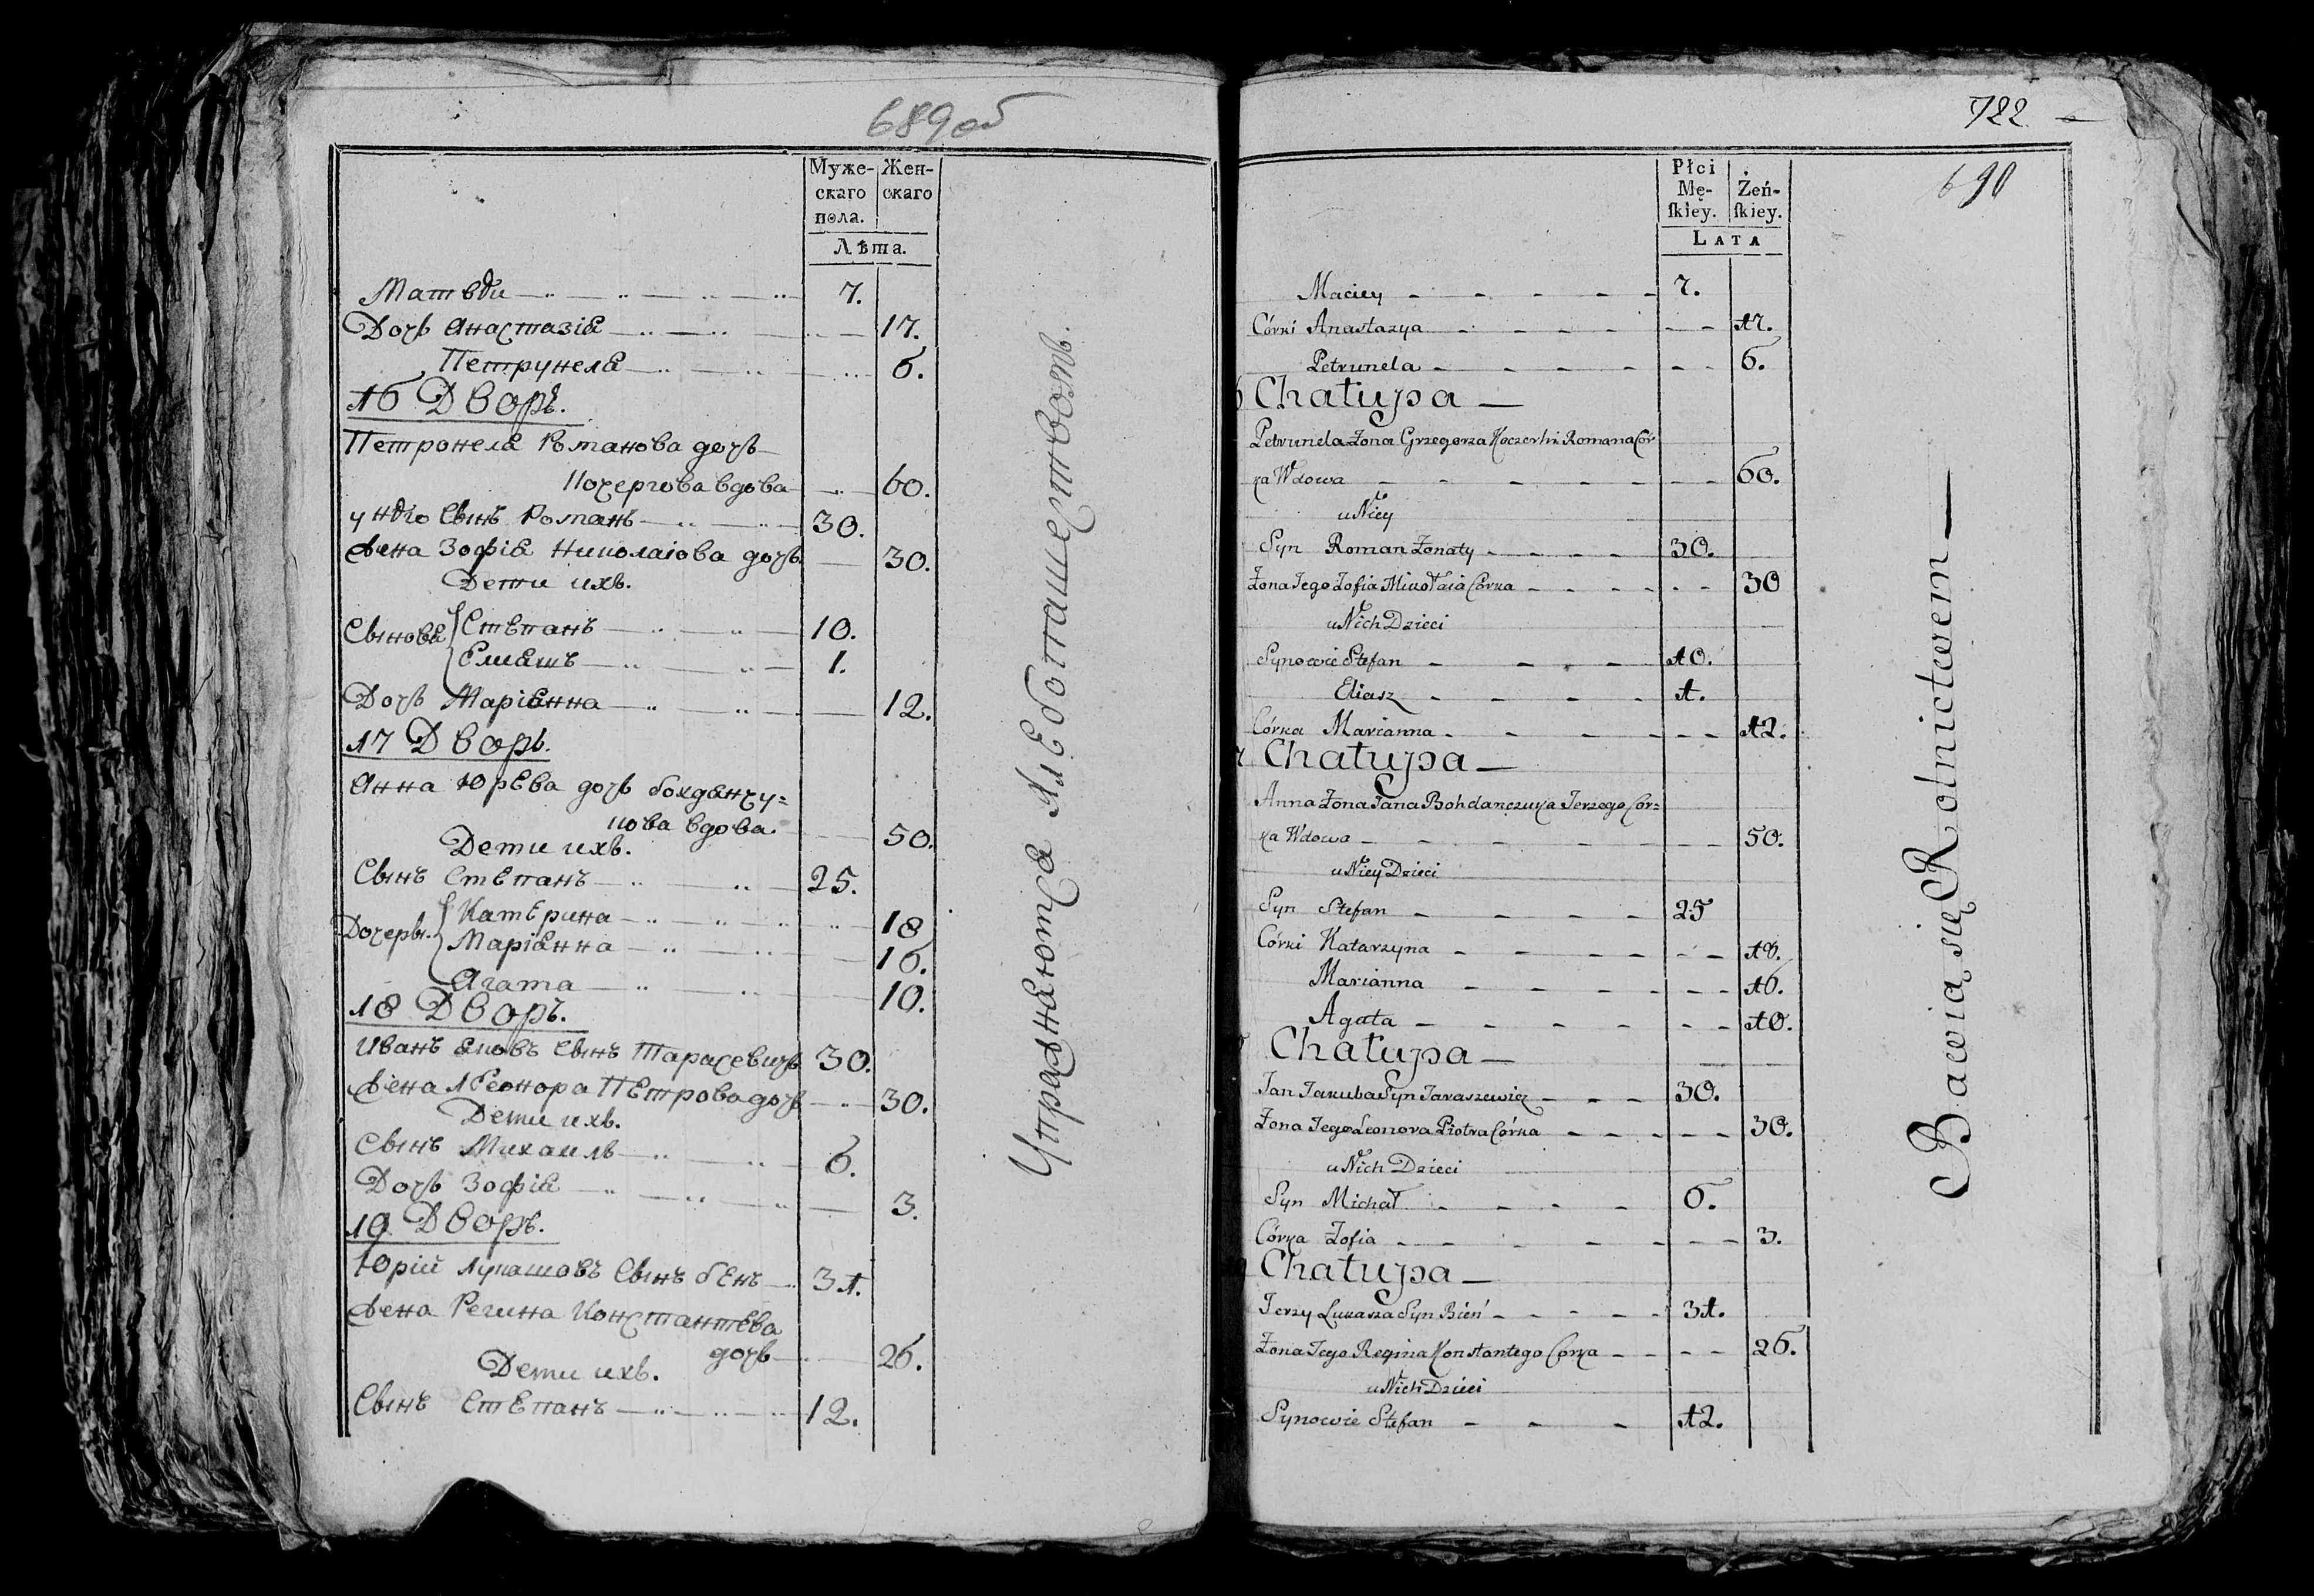 689об
Муже-
скаго
пола.
Жен-
скаго
Лѣта.
Матвѣи 7.
Дочь Анастазія 17.
Петрунеля 6.
16 Дворъ.
Петронеля Романова дочь
Кочергова вдова 60.
у нѣго Сынъ Романъ 30.
Жена Зофія Николаіова дочь 30.
Дети ихъ.
Сыновя Стѣпанъ 10.
Еліяшъ 1.
Дочь Маріянна 12.
17 Дворъ.
Анна Юрѣва дочь Богданчу=
кова вдова 50.
Дети ихъ.
Сынъ Стѣпанъ 25.
Дочеры. Катѣрина 18
Маріянна 16.
Агата 10.
18 Дворъ.
Иванъ Яковъ Сынъ Тарасевичъ 30.
Жена Леонора Пѣтрова дочь 30.
Дети ихъ.
Сынъ Михаилъ 6.
Дочь Зофія 3.
19 Дворъ.
Юрій Лукашовъ Сынъ бѣнь 31.
Жена Регина Константѣва
дочь 26.
Дети ихъ.
Сынъ Стѣпанъ 12.
Упражняются хлѣбопашеством.
722
690
Płci
Mę-
ſkiey.
Żeń-
ſkiey.
LATA
Maciey 7.
Córki Anastazya 17.
Petrunela 6.
Chałupa
Petrunela Żona Grzegorza Koczerhi Romana Cór
ka Wdowa 60.
u Niey
Syn Roman Żonaty 30.
Żona Jego Zofia Mikołaia Córka 30
u Nich Dzieci
Synowie Stefan 10.
Eliasz 1.
Córka Marianna 12.
Chałupa
Anna Żona Jana Bohdanczuka Jerzego Cor=
ka Wdowa 50.
u Niey Dzieci
Syn Stefan 25
Córki Katarzyna 18.
Marianna 16.
Agata 10.
Chałupa
Jan Jakuba Syn Taraszewicz 30.
Żona Jego Leonora Piotra Córka 30.
u Nich Dzieci
Syn Michał 6.
Córka Zofia 3.
Chałupa
Jerzy Łukasza Syn Bień 31.
Żona Jego Regina Konstantego Córka 26.
u Nich Dzieci
Synowie Stefan 12.
Bawia się Rolnictwem